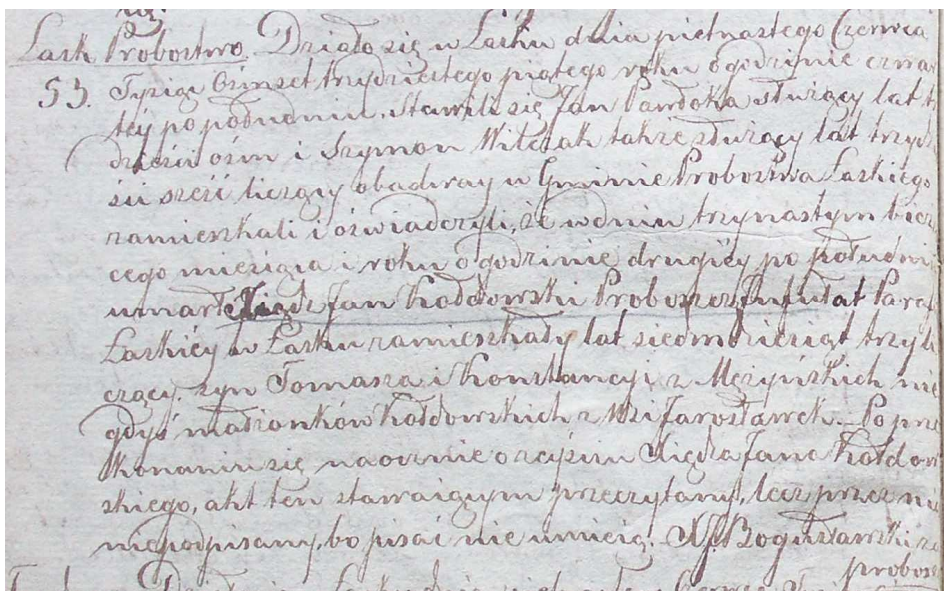 Lask Probostwo. Działo się w Lasku dnia piętnastego Czerwca
53. Tysiąc Ośmset trzydziestego piątego roku o godzinie czwar
téy po południu, Stawili się Jan Pawłoka służący lat t
dzieści ośm i Szymon Wilczak także służący lat trzydz
ści sześć liczący obadway w Gminie Probostwa Laskiego
zamieszkali i oświadczyli, że w dniu trzynastym bież
cego miesiąca i roku o godzinie drugiéy po południ
umarł Xiądz Jan Kołdowski Proboszcz Infułat Para
Laskiéy w Lasku zamieszkały lat siedmdziesiąt trzy li
czący. syn Tomasza i Konstancyi z Mężyńskich nie
gdyś małżonków Kołdowskich z Wsi Jarosławek. Po prze
konaniu się naocznie o zejściu Xiędza Jana Kołdow
skiego, akt ten stawaiącym przeczytany, lecz przez ni
niepodpisany, bo pisać nie umieią. X. J. Bogusławski za
probosz